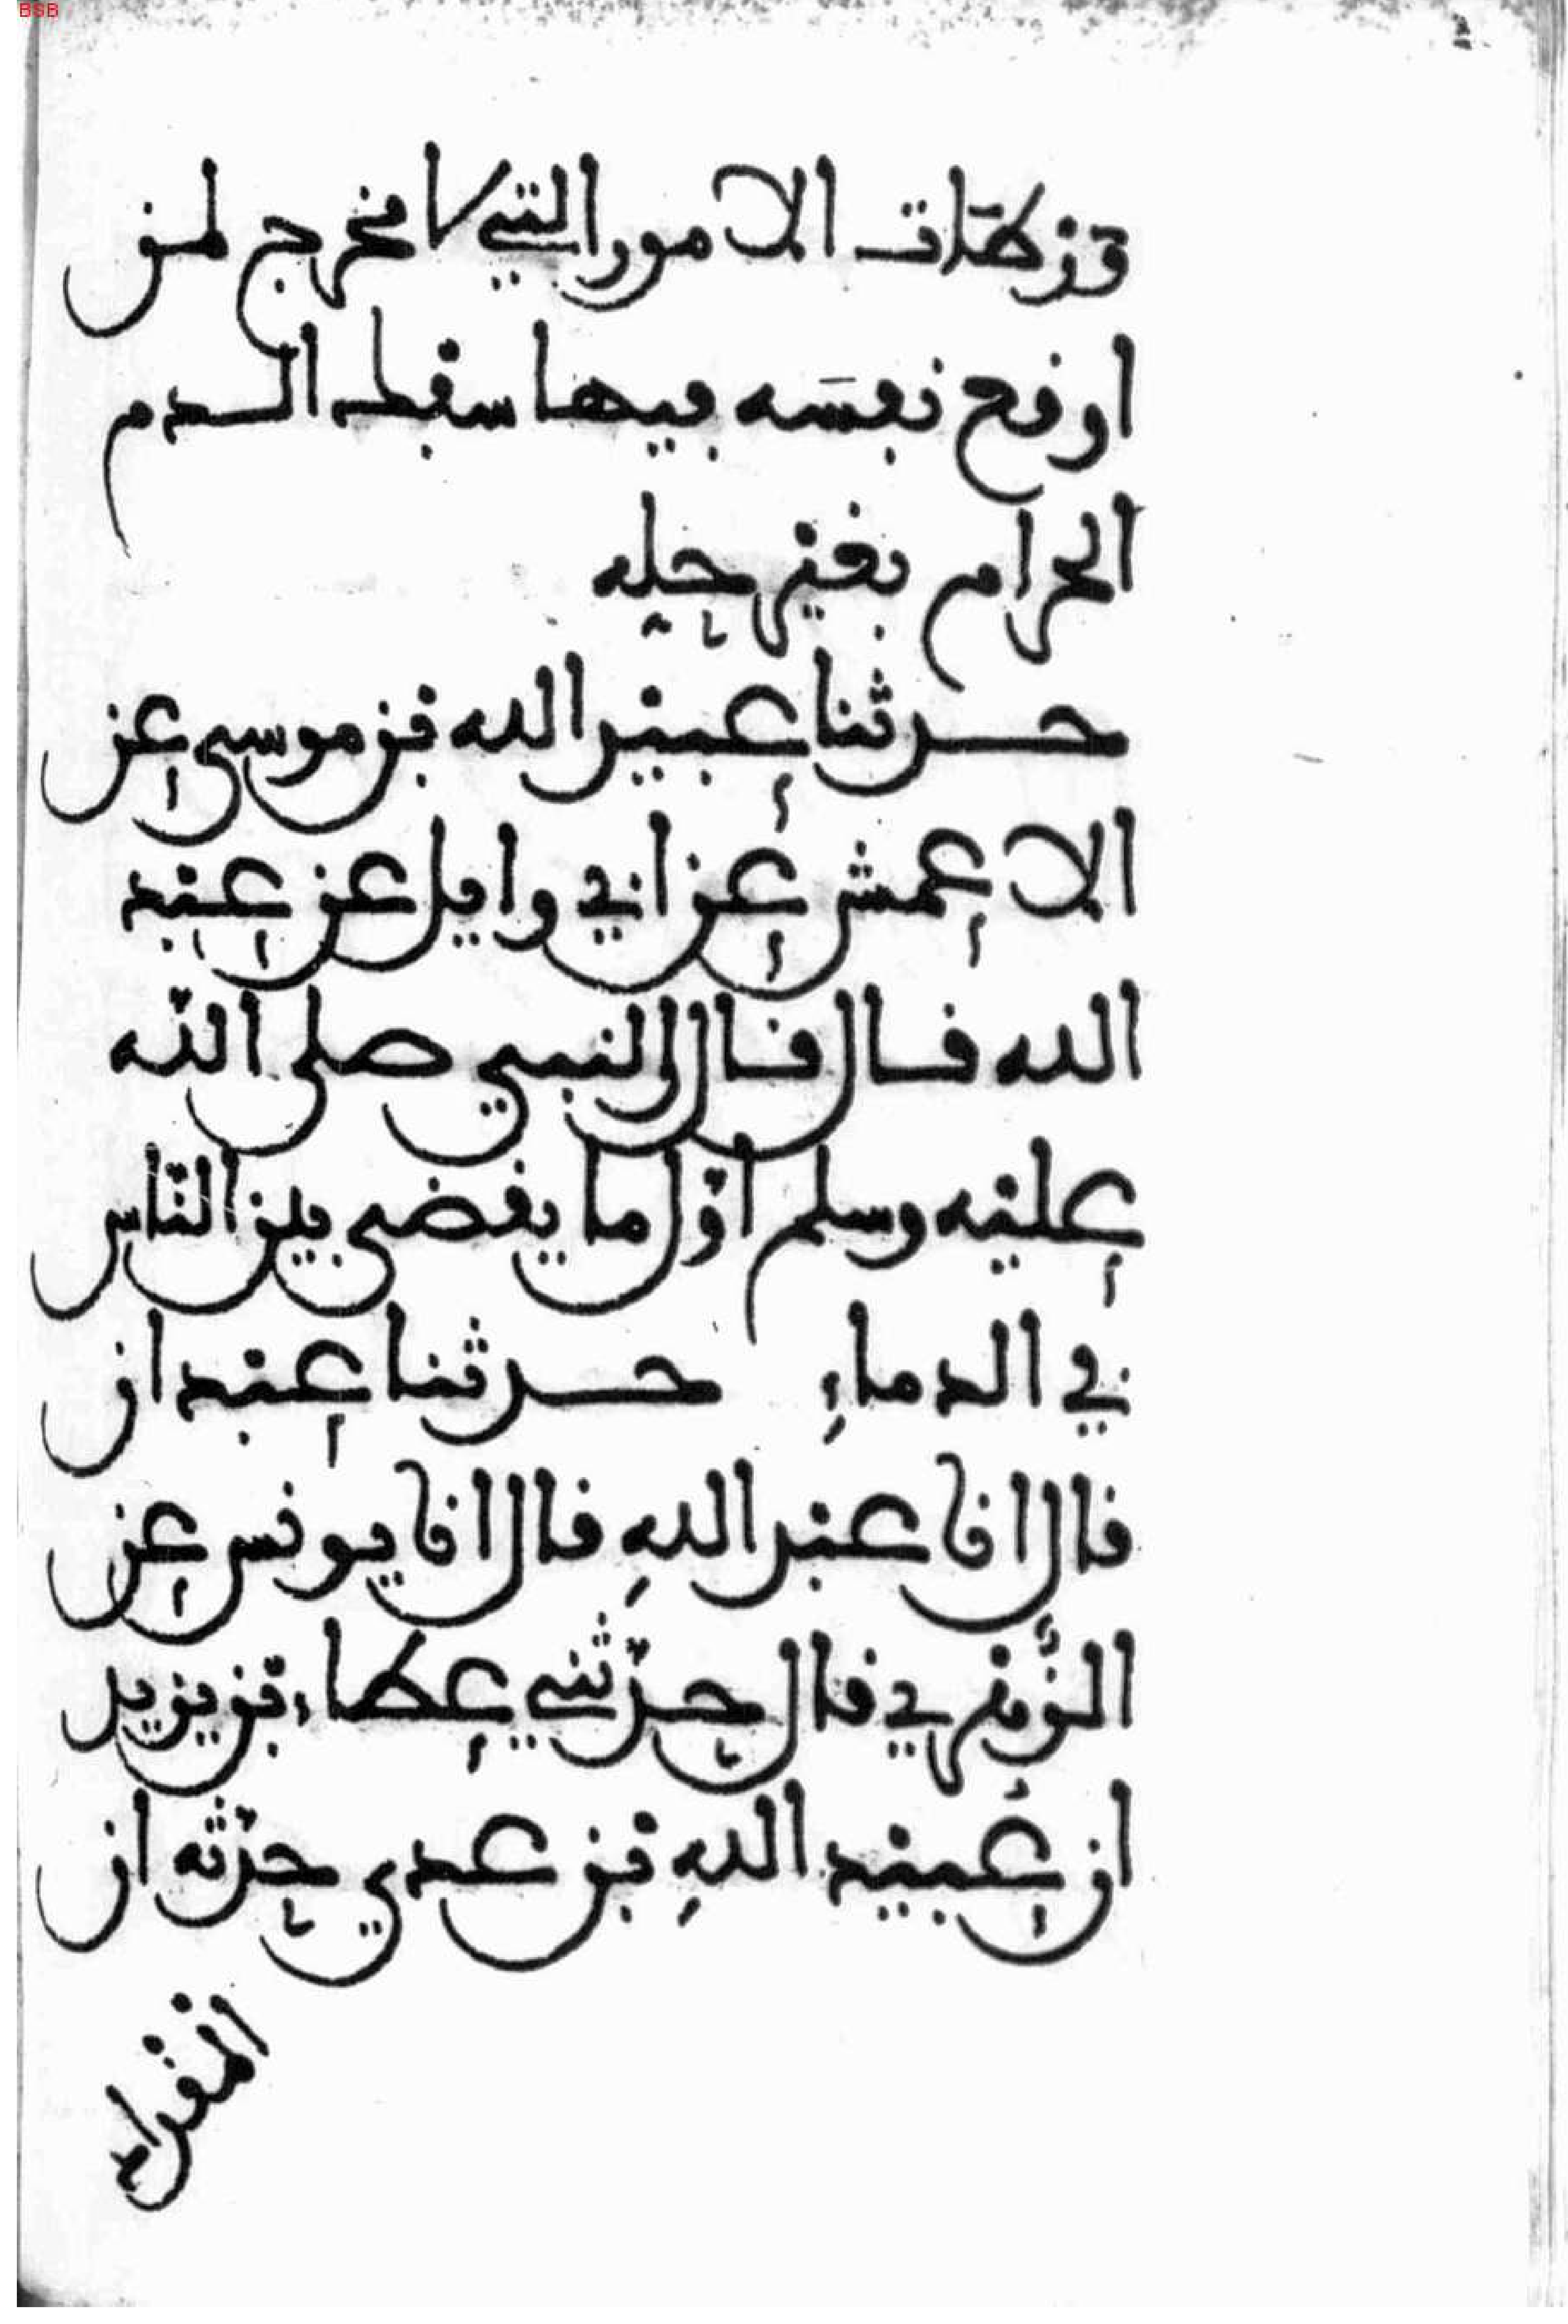 BSB
2
ورطات الامور التي لا مخرج لمن
اوقع نفسه فيها سفك الدم
الحرام بغير حله
حدثنا عبيد الله بن موسى عن
الاعمش عن ابي وايل عن عبد
الله قال قال النبي صلى الله
عليه وسلم اوّل ما يقضى بين النّاس
في الدماءِ حدثنا عبدان
قال انا عبد اللهِ قال انا يونس عن
الزُّهري قال حدّثني عطاء بن يزيد
ان عُبيد اللهِ بن عدي حدّثه ان
المقداد